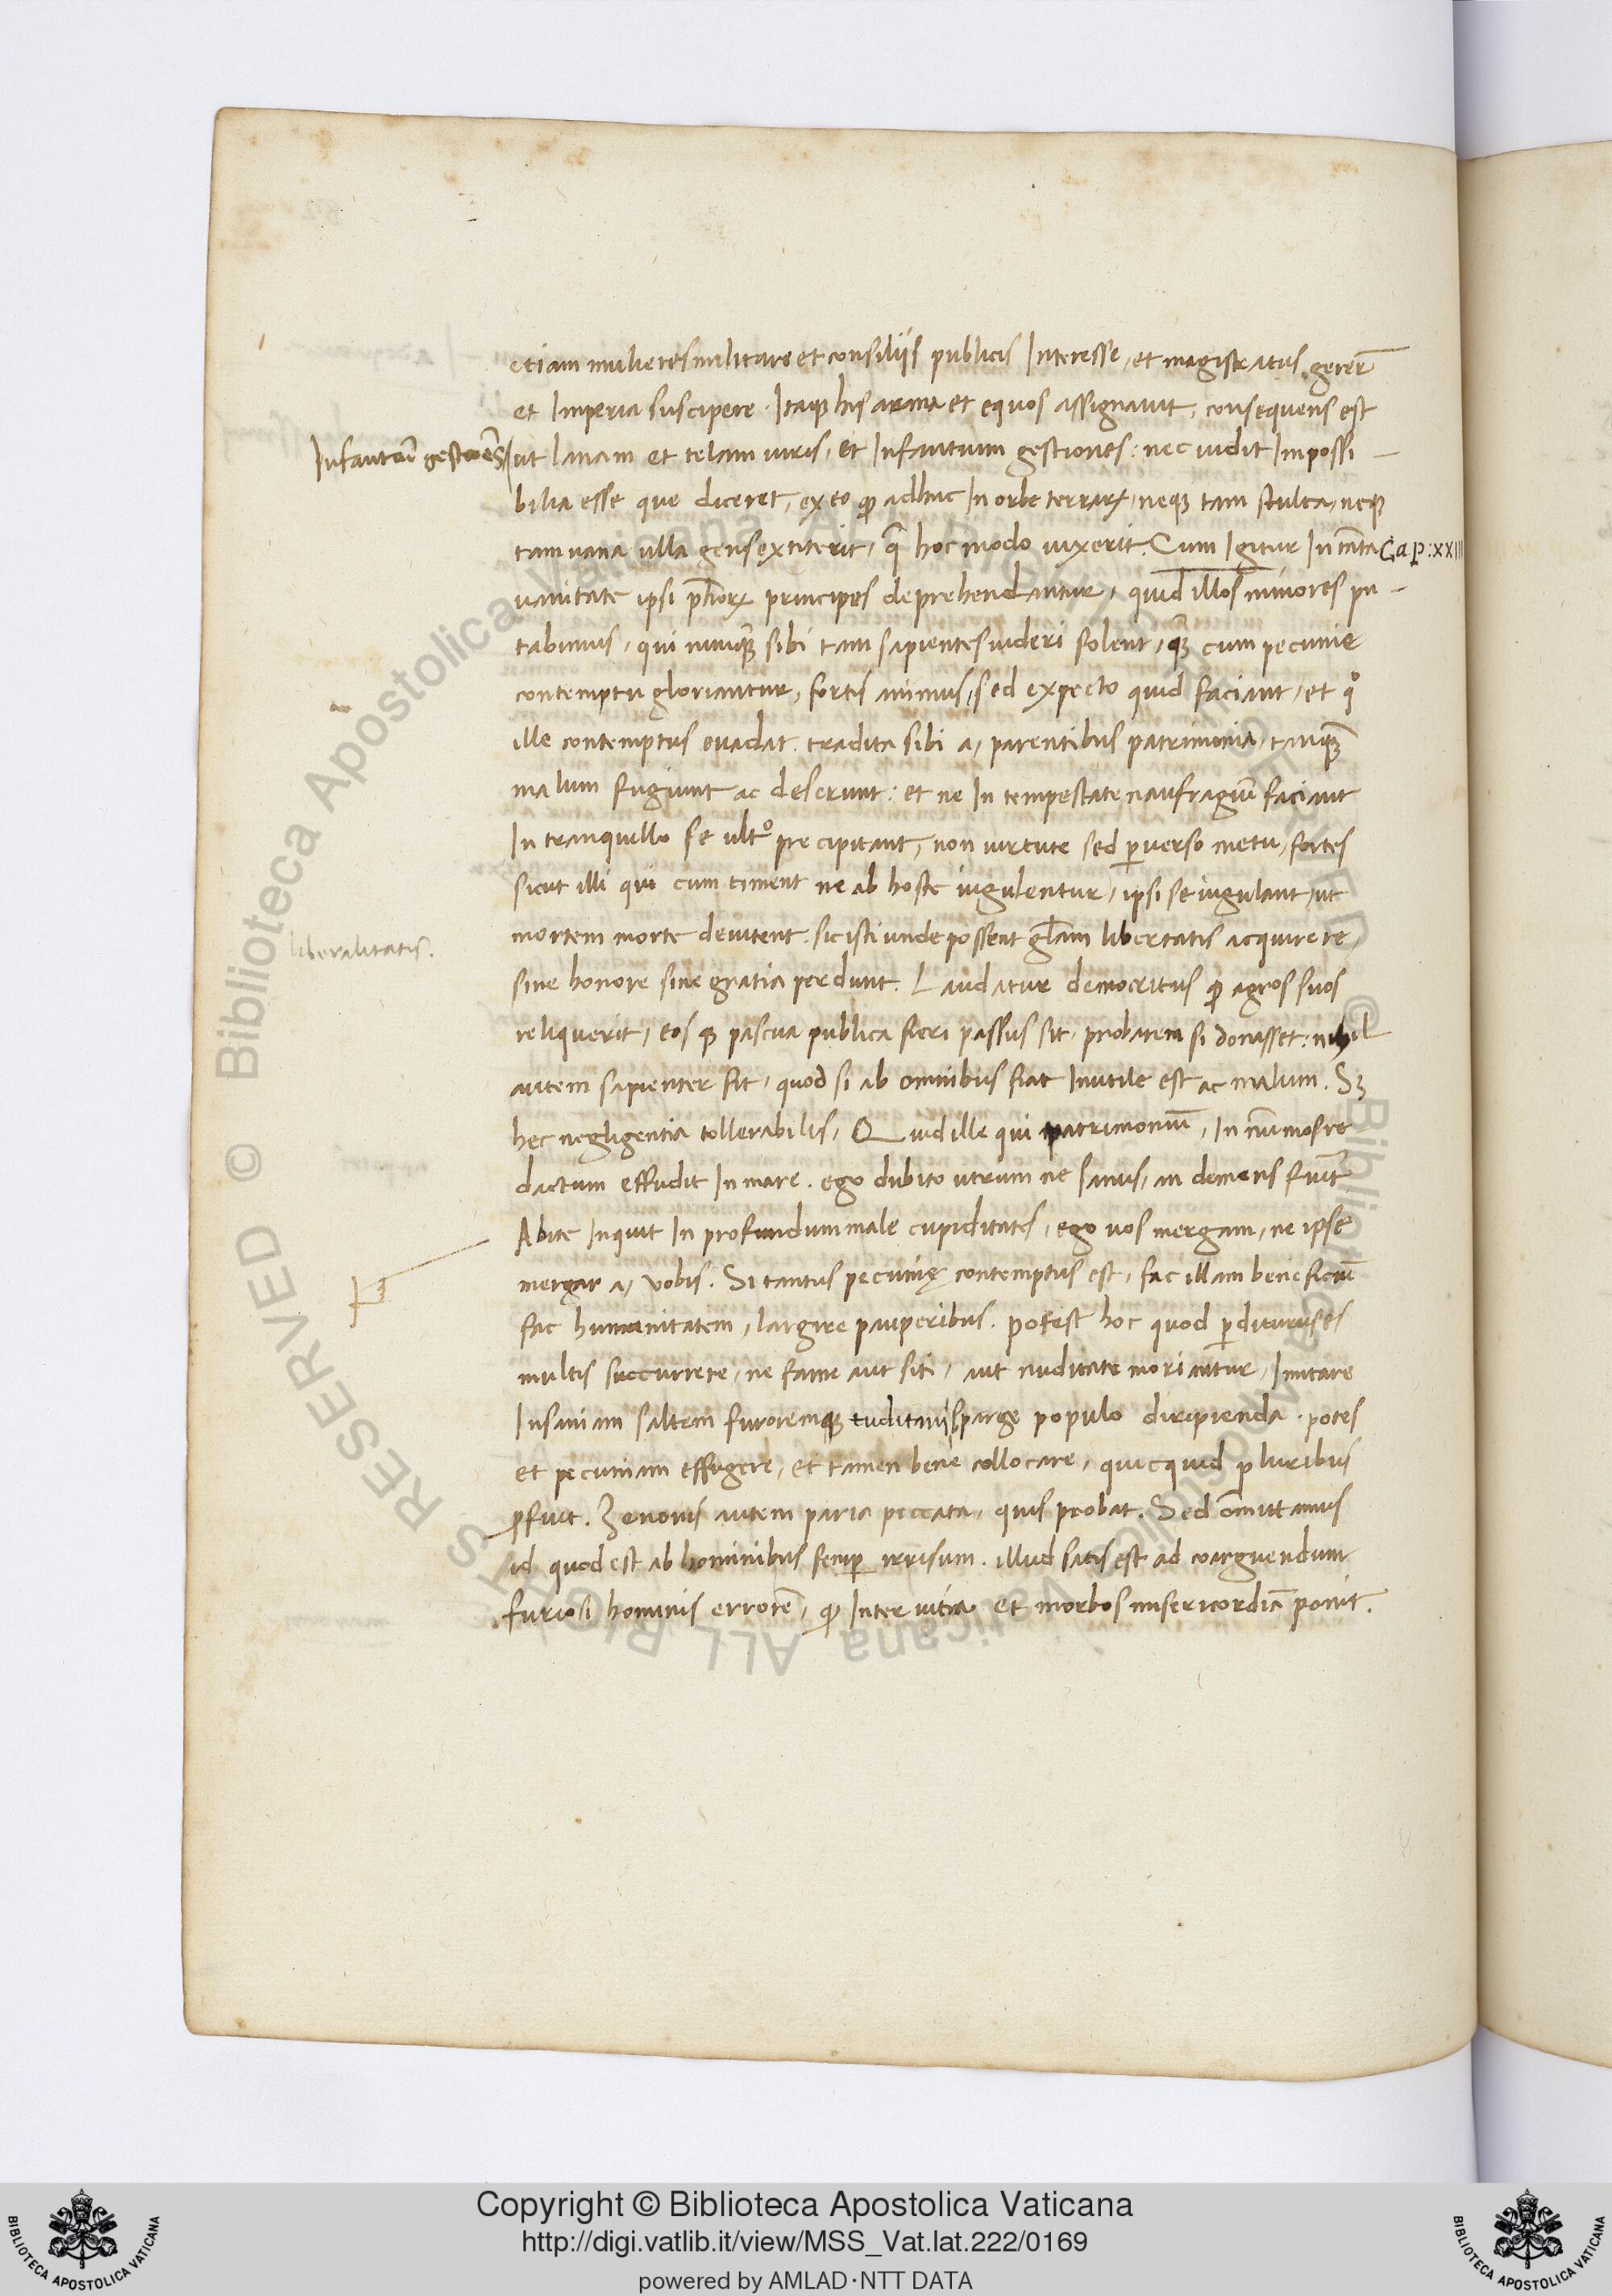 etiam mulieres militare et consilijs publicis Interesse, et magistratus gerer̄
et Imperia suscipere. Itaqꝫ his arma et equos assignauit, consequens est
Infantiū gestiōes
ut lanam et telam uiris, et Infantium gestiones: nec uidit Impossi
bilia esse que diceret, ex eo ꝙ adhuc In orbe terraꝝ, neqꝫ tam stulta, neqꝫ
tam uana ulla gens extiterit, q̄ hoc modo uixerit. Cum Igitur In tāta
Cap: XXIII
uanitate ipsi pħioꝝ principes deprehendantur, quid illos minores pu
tabimus, qui nunqꝫ̄ sibi tam sapientes uideri solent, qꝫ̄ cum pecunie
contemptu gloriantur, fortis animus, sed expecto quid faciant, et qͦ
ille contemptus euadat. tradita sibi a, parentibus patrimonia, tanqꝫ̄
malum fugiunt ac deserunt: et ne In tempestate naufragiū faciant
In tranquillo se ultͦ precipitant, non uirtute sed ꝑuerso metu, fortes
sicut illi qui cum timent ne ab hoste iugulentur, ipsi se iugulant, ut
mortem morte deuitent. sic isti unde possent gl̄am libertatis acquirere,
liberalitatis.
sine honore sine gratia perdunt. Laudatur democritus ꝙ agros suos
reliquerit, eos qꝫ pascua publica fieri passus sit, probarem si donasset: nihil
autem sapienter fit, quod si ab omnibus fiat Inutile est ac malum. Sꝫ
hec negligentia tollerabilis, Quid ille qui patrimoniū, In nūmos re
dactum effudit In mare. ego dubito utrum ne sanus, an demens fuit̄
Abite Inquit In profundum male cupiditates, ego uos mergam, ne ipse
mergar a, vobis. Si tantus pecunię contemptus est, fac illam beneficiū
fac humanitatem, largire pauperibus. potest hoc quod ꝑditurus es
multis succurrere, ne fame aut siti, aut nuditate moriantur, Imitare
Insaniam saltem furoremqꝫ tuditani, sparge populo diripienda. potes
et pecuniam effugere, et tamen bene collocare, quicquid pluribus
ꝓfuit. Zenonis autem paria peccata, quis probat. Sed omittamus
id quod est ab hominibus semꝑ irrisum. illud satis est ad coarguendum
furiosi hominis errorē, ꝙ Inter uitia et morbos misericordiā ponit.
Copyright © Biblioteca Apostolica Vaticana
http://digi.vatlib.it/view/MSS_Vat.lat.222/0169
powered by AMLAD·NTT DATA
BIBLIOTECA APOSTOLICA VATICANA
BIBLIOTECA APOSTOLICA VATICANA
© Biblioteca Apostolica Vaticana ALL RIGHTS RESERVED
© Biblioteca Apostolica Vaticana ALL RIGHTS RESERVED